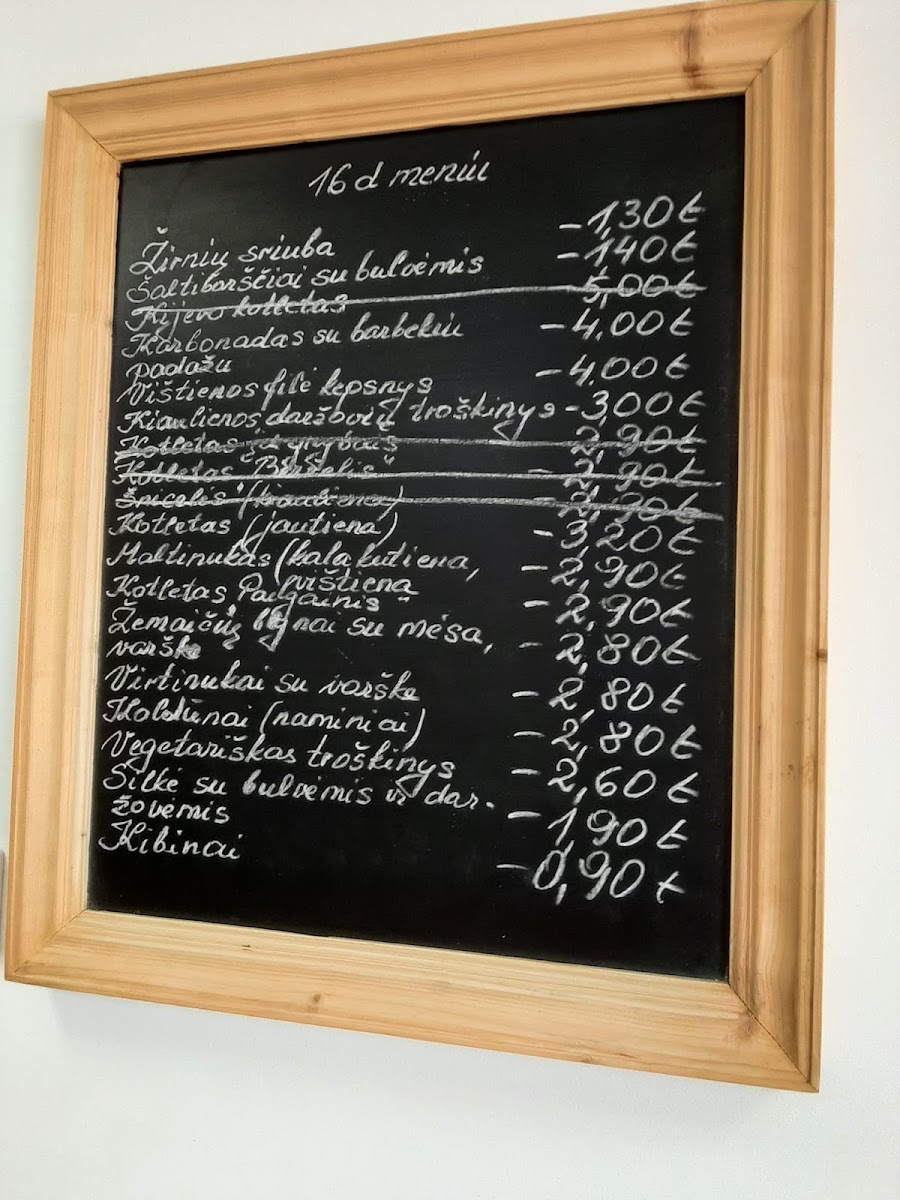 16 d meniu
Žirnių sriuba - 1,30 €
Šaltibarščiai su bulvėmis - 1,40 €
Kijevo kotletas 5,00 €
Karbonadas su barbekiu - 4,00 €
padažu
Vištienos filė kepsnys - 4,00 €
Kiaulienos, daržovių troškinys - 3,00 €
Kotletas 2,90 €
Kotletas "Birželis" - 2,90 €
Šnicelis (kiauliena) - 2,90 €
Kotletas (jautiena) - 3,20 €
Maltinukas (kalakutiena, - 2,90 €
vištiena
Kotletas "Pajgainis" - 2,90 €
Žemaičių blynai su mėsa, - 2,80 €
varške
Virtinukai su varške - 2,80 €
Koldūnai (naminiai) - 2,80 €
Vegetariškas troškinys - 2,60 €
Silkė su bulvėmis ir dar- - 1,90 €
žovėmis
Kibinai - 0,90 €